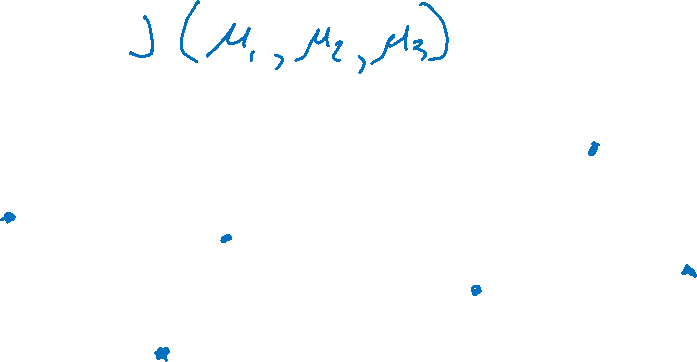 J(μ₁, μ₂, μ₃)